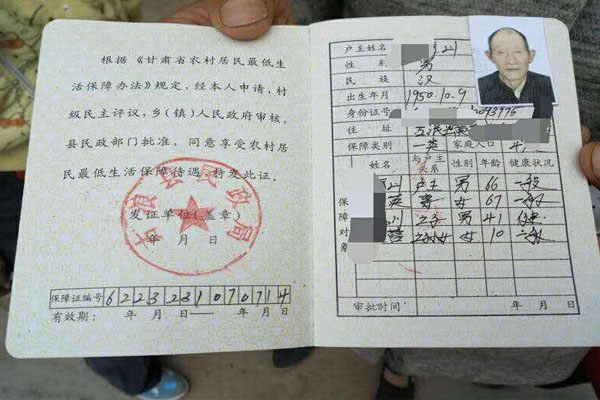 根据《甘肃省农村居民最低生
活保障办法》规定，经本人申请，村
级民主评议，乡(镇)人民政府审核，
县民政部门批准，同意享受农村居
民最低生活保障待遇，特发此证。
发证单位(盖章)
年 月 日
县民政局
保障证编号 6223231070714
有效期： 年 月 日—— 年 月 日
户主姓名
性 别 男
民 族 汉
出生年月 1950.10.9
身份证号
住 址
保障类别 一类 家庭人口 4
姓名 与户主关系 性别 年龄 健康状况
户主 男 66 一般
妻 女 67 一般
之子 男 41
女 10
保障对象
审批时间 年 月 日